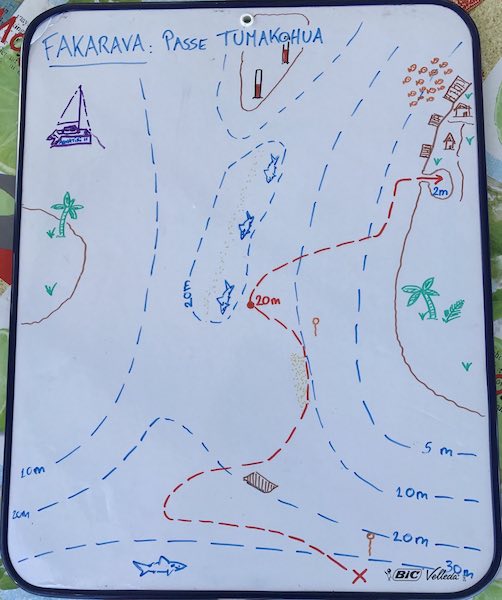 FAKARAVA: PASSE TUMAKOHUA
2m
20m
20m
5m
10m
10m
20m
20m
30m
BIC Velleda